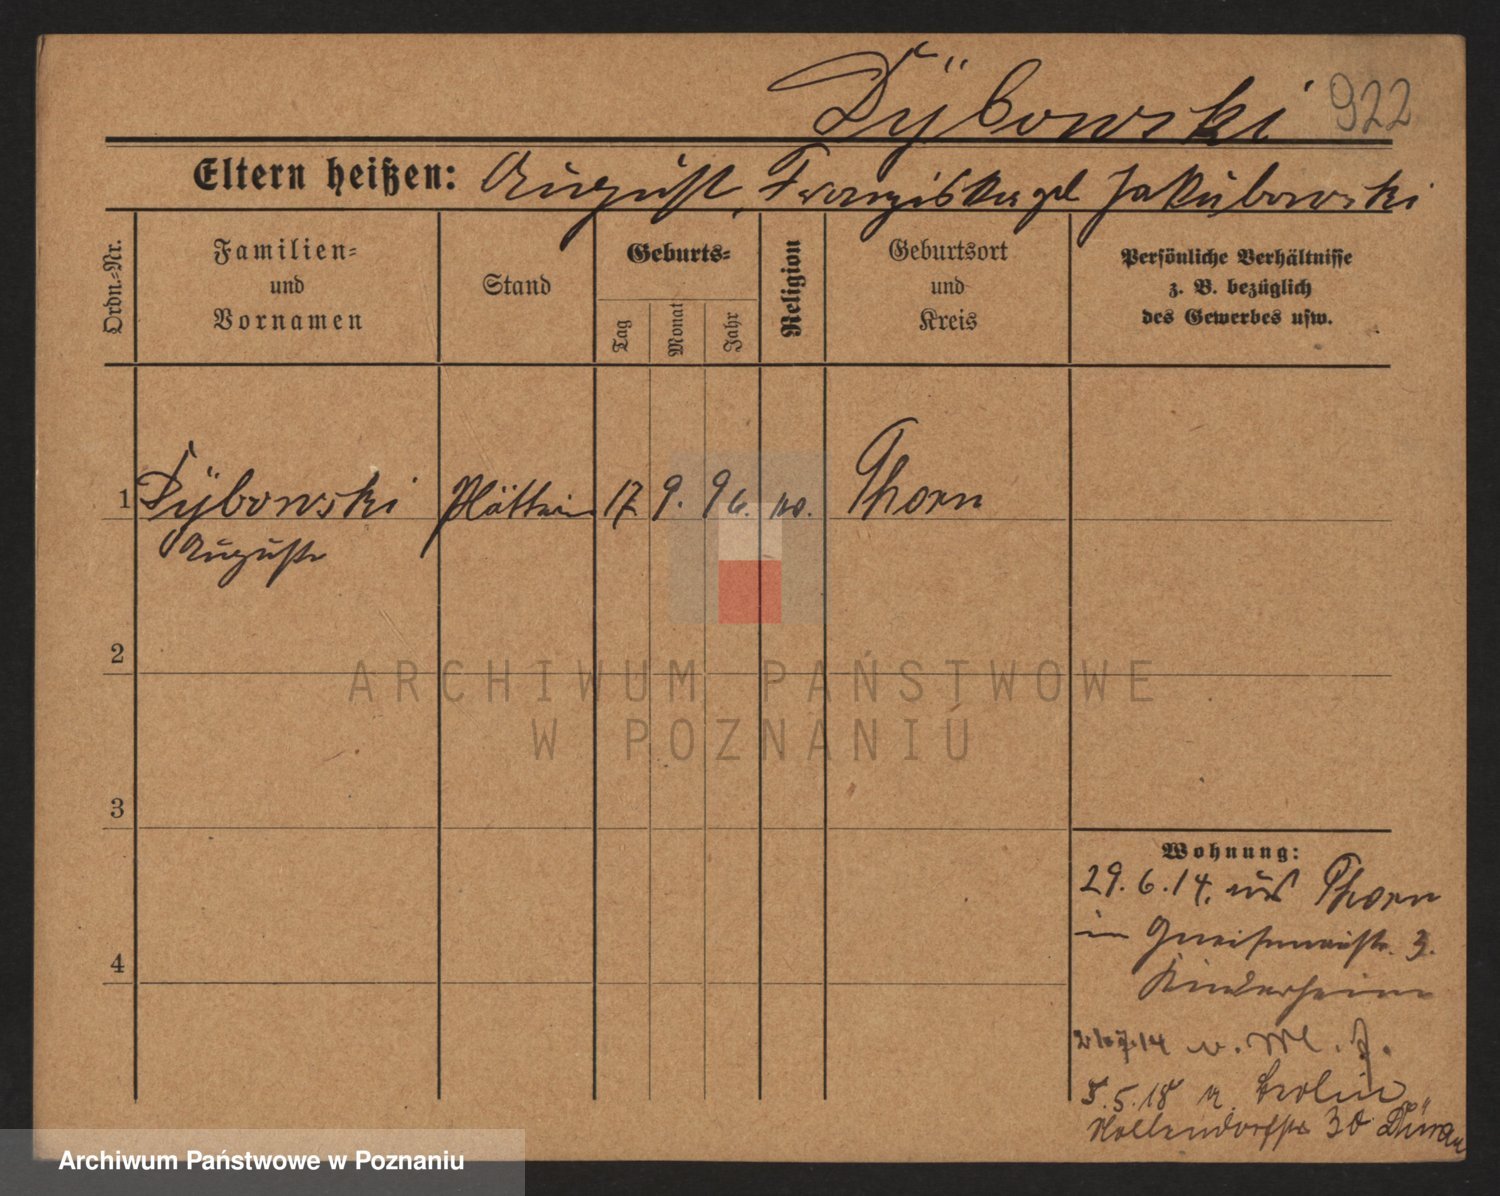 Dÿbowski 922
Eltern heißen: August, Franziska geb Jakubowski
Ordn.-Nr.
Familien-
und
Vornamen
Stand
Geburts-
Tag
Monat
Jahr
Religion
Geburtsort
und
Kreis
Persönliche Verhältnisse
z. B. bezüglich
des Gewerbes usw.
1 Dÿbowski Plätterin 17. 9. 96. Thorn
Auguste
2
3
4
Wohnung:
29. 6. 14. aus Thorn
in Gneisenaustr. 3.
Kinderheim
14 v. M.
8. 5. 18 n. Berlin
Nollendorfstr 30
ARCHIWUM PAŃSTWOWE
W POZNANIU
Archiwum Państwowe w Poznaniu